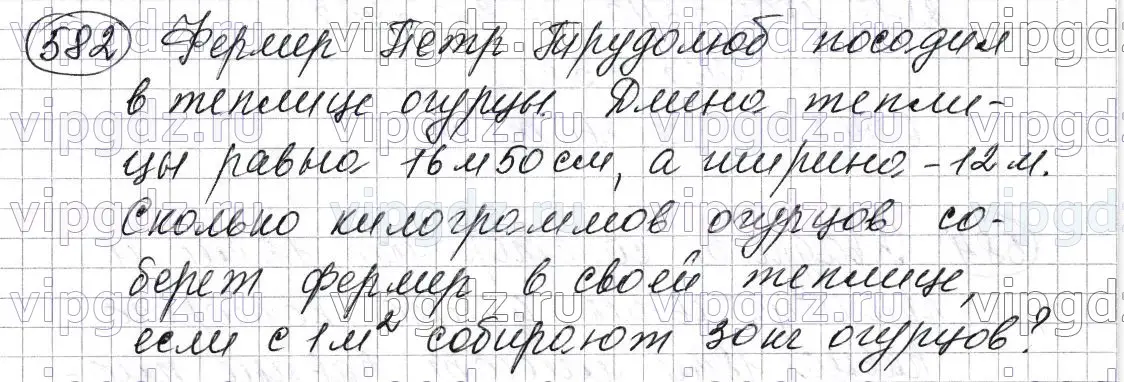 582 Фермер Петр Трудолюб посадил
в теплице огурцы. Длина тепли-
цы равна 16 м 50 см, а ширина - 12 м.
Сколько килограммов огурцов со-
берет фермер в своей теплице,
если с 1 м² собирают 30 кг огурцов?